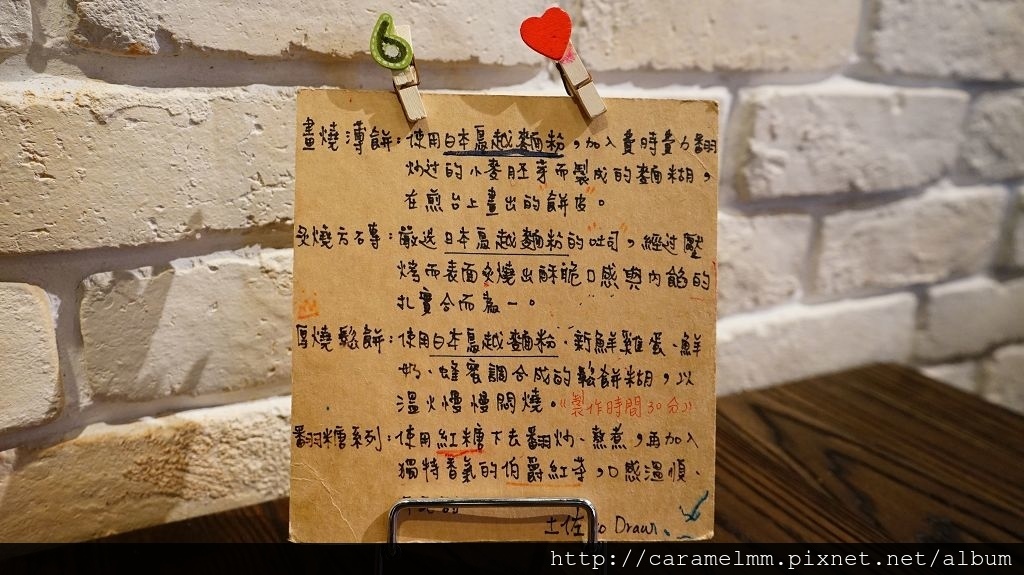 6
畫燒薄餅：使用日本鳥越麵粉，加入費時費力翻
炒过的小麥胚芽而製成的麵糊，
在煎台上畫出的餅皮。
炙燒方石專：嚴选日本鳥越麵粉的"吐司"，經过壓
烤而表面炙燒出酥脆口感與內餡的
扎實合而為一。
厚燒鬆餅：使用日本鳥越麵粉、新鮮雞蛋、鮮
奶、蜂蜜調合成的鬆餅糊，以
溫火慢慢悶燒。《製作時間30分》
翻糖系列：使用紅糖下去翻炒、熬煮，再加入
獨特香氣的伯爵紅茶，口感溫順、
土佐 to Draw.
http://caramelmm.pixnet.net/album